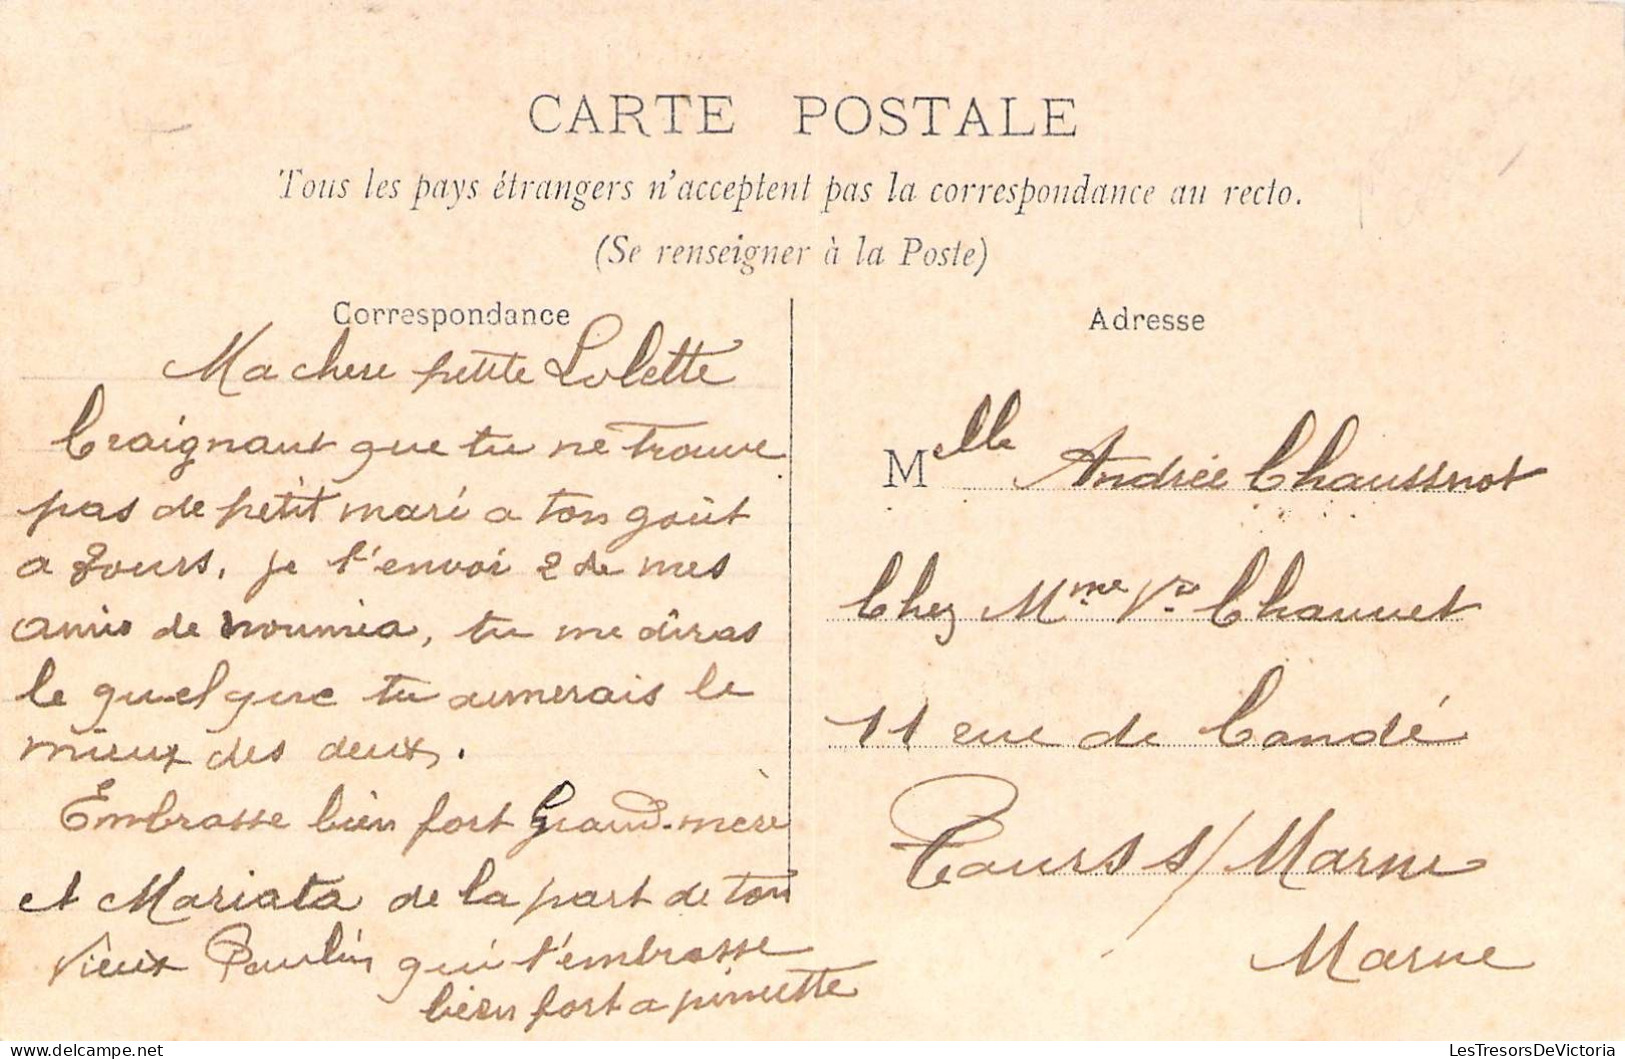 CARTE POSTALE
Tous les pays étrangers n'acceptent pas la correspondance au recto.
(Se renseigner à la Poste)
Correspondance
Ma chere petite Lolette
Craignant que tu ne trouve
pas de petit mari a ton goût
a Tours, je t'envoi 2 de mes
amis de Nouméa, tu me diras
le quel que tu aimerais le
mieux des deux.
Embrasse bien fort Grand-mère
et Mariata de la part de ton
vieux Paulin qui t'embrasse
bien fort a pinsette
Adresse
Melle Andrée Chaussnot
Chez Mme Ve Chauvet
11 rue de Condé
Tours s/ Marne
Marne
LesTresorsDeVictoria